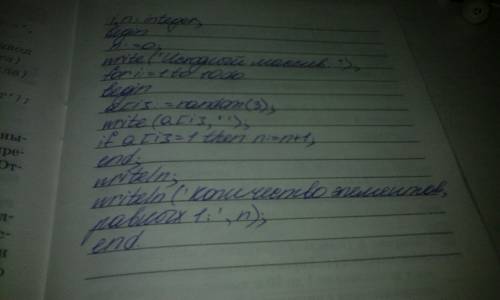 i,n: integer;
begin
n:=0;
write('Исходной массив: ');
for i:=1 to 10 do
begin
a[i]:=random(3);
write(a[i],' ');
if a[i]=1 then n:=n+1;
end;
writeln;
writeln('количество элементов,
равных 1:', n);
end